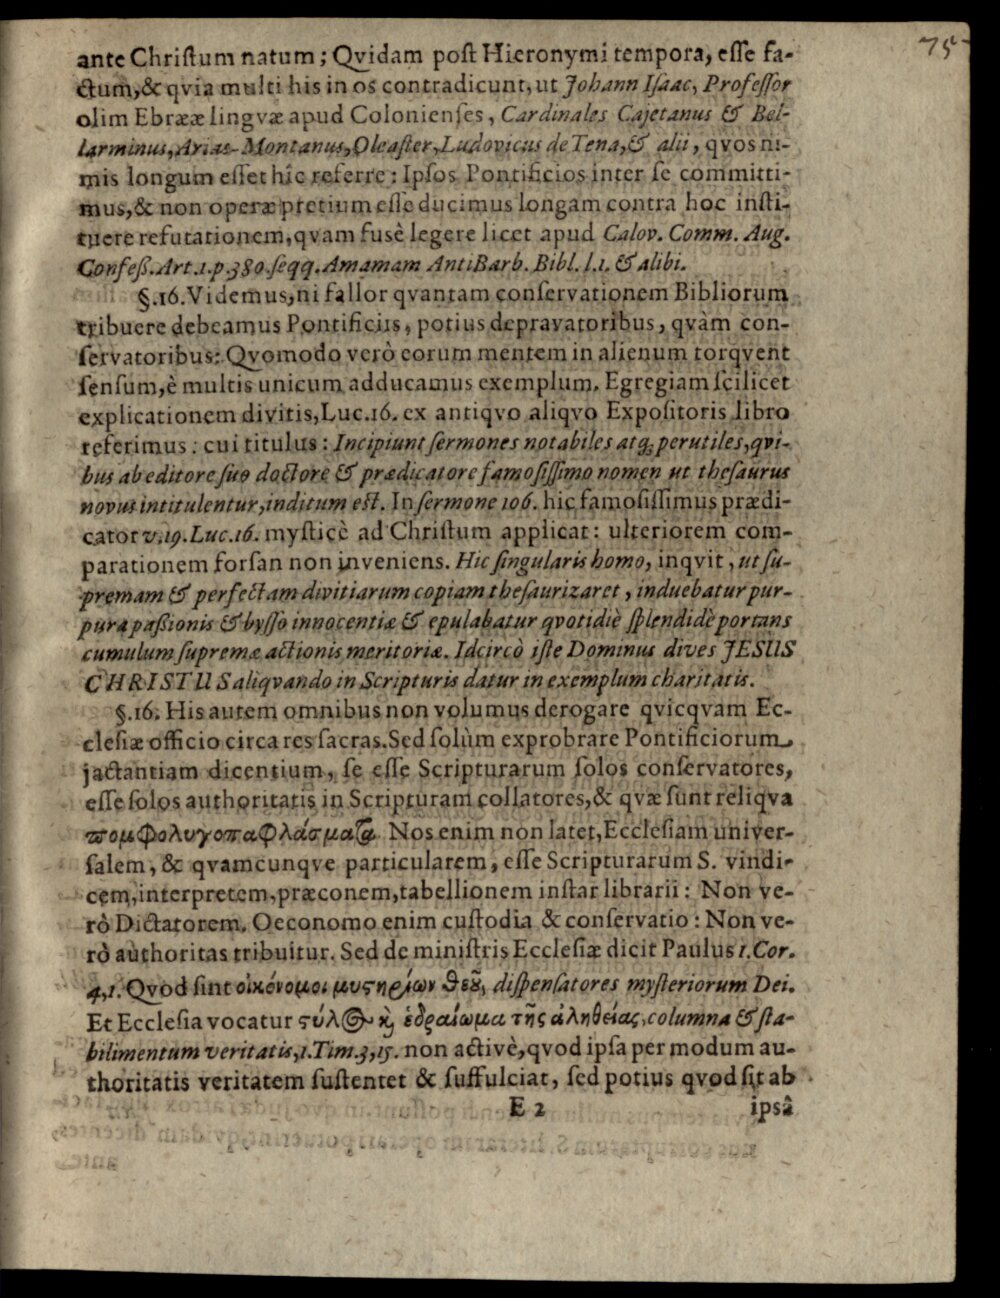 75
ante Christum natum; Qvidam post Hieronymi tempora, esse fa-
ctum,& qvia multi his in os contradicunt, ut Johann Isaac, Professor
olim Ebrææ lingvæ apud Colonienses, Cardinales Cajetanus & Bel-
larminus, Arias-Montanus, Oleaster, Ludovicus de Tena,& alii, qvos ni-
mis longum esset hîc referre: Ipsos Pontificios inter se committi-
mus,& non operæ pretium esse ducimus longam contra hoc insti-
tuere refutationem, qvam fusè legere licet apud Calov. Comm. Aug.
Confeß. Art.1.p.380.seqq. Amamam AntiBarb. Bibl. l.1. & alibi.
§.16. Videmus, ni fallor qvantam conservationem Bibliorum
tribuere debeamus Pontificiis, potius depravatoribus, qvàm con-
servatoribus: Qvomodo verò eorum mentem in alienum torqvent
sensum, è multis unicum adducamus exemplum. Egregiam scilicet
explicationem divitis, Luc.16. ex antiqvo aliqvo Expositoris libro
referimus: cui titulus: Incipiunt sermones notabiles atq; perutiles, qvi-
bus ab editore suo doctore & prædicatore famosissimo nomen ut thesaurus
novus intitulentur, inditum est. In sermone 106. hic famosissimus prædi-
cator v.19. Luc.16. mysticè ad Christum applicat: ulteriorem com-
parationem forsan non inveniens. Hic singularis homo, inqvit, ut su-
premam & perfectam divitiarum copiam thesaurizaret, induebatur pur-
pura paßionis & bysso innocentiæ & epulabatur qvotidiè splendidè portans
cumulum supremæ actionis meritoriæ. Idcircò iste Dominus dives JESUS
CHRISTUS aliqvando in Scripturis datur in exemplum charitatis.
§.16. His autem omnibus non volumus derogare qvicqvam Ec-
clesiæ officio circa res sacras. Sed solùm exprobrare Pontificiorum
jactantiam dicentium, se esse Scripturarum solos conservatores,
esse solos authoritatis in Scripturam collatores,& qvæ sunt reliqva
πομφολυγοπαφλάσματα. Nos enim non latet, Ecclesiam univer-
salem, & qvamcunqve particularem, esse Scripturarum S. vindi-
cem, interpretem, præconem, tabellionem instar librarii: Non ve-
rò Dictatorem. Oeconomo enim custodia & conservatio: Non ve-
rò authoritas tribuitur. Sed de ministris Ecclesiæ dicit Paulus 1. Cor.
4,1. Qvod sint οἰκόνομοι μυςηρίων θεȣ͂, dispensatores mysteriorum Dei.
Et Ecclesia vocatur ςύλος κ̀ ἑδραίωμα τῆς ἀληθείας, columna & sta-
bilimentum veritatis, 1. Tim.3,15. non activè, qvod ipsa per modum au-
thoritatis veritatem sustentet & suffulciat, sed potius qvod sit ab
E 2 ipsâ